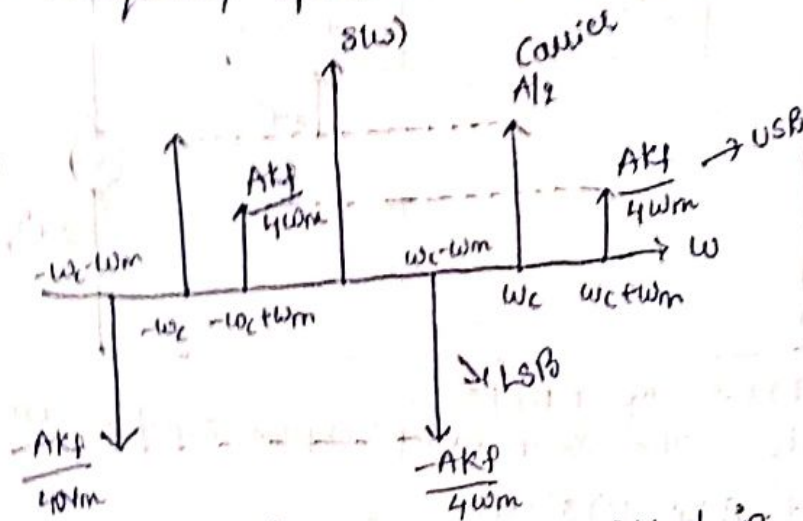 S(ω)
Carrier
A/2
AKf/4ωm
AKf/4ωm → USB
-ωc-ωm
ωc-ωm
ω
-ωc
-ωc+ωm
ωc
ωc+ωm
↘ LSB
-AKf/4ωm
-AKf/4ωm